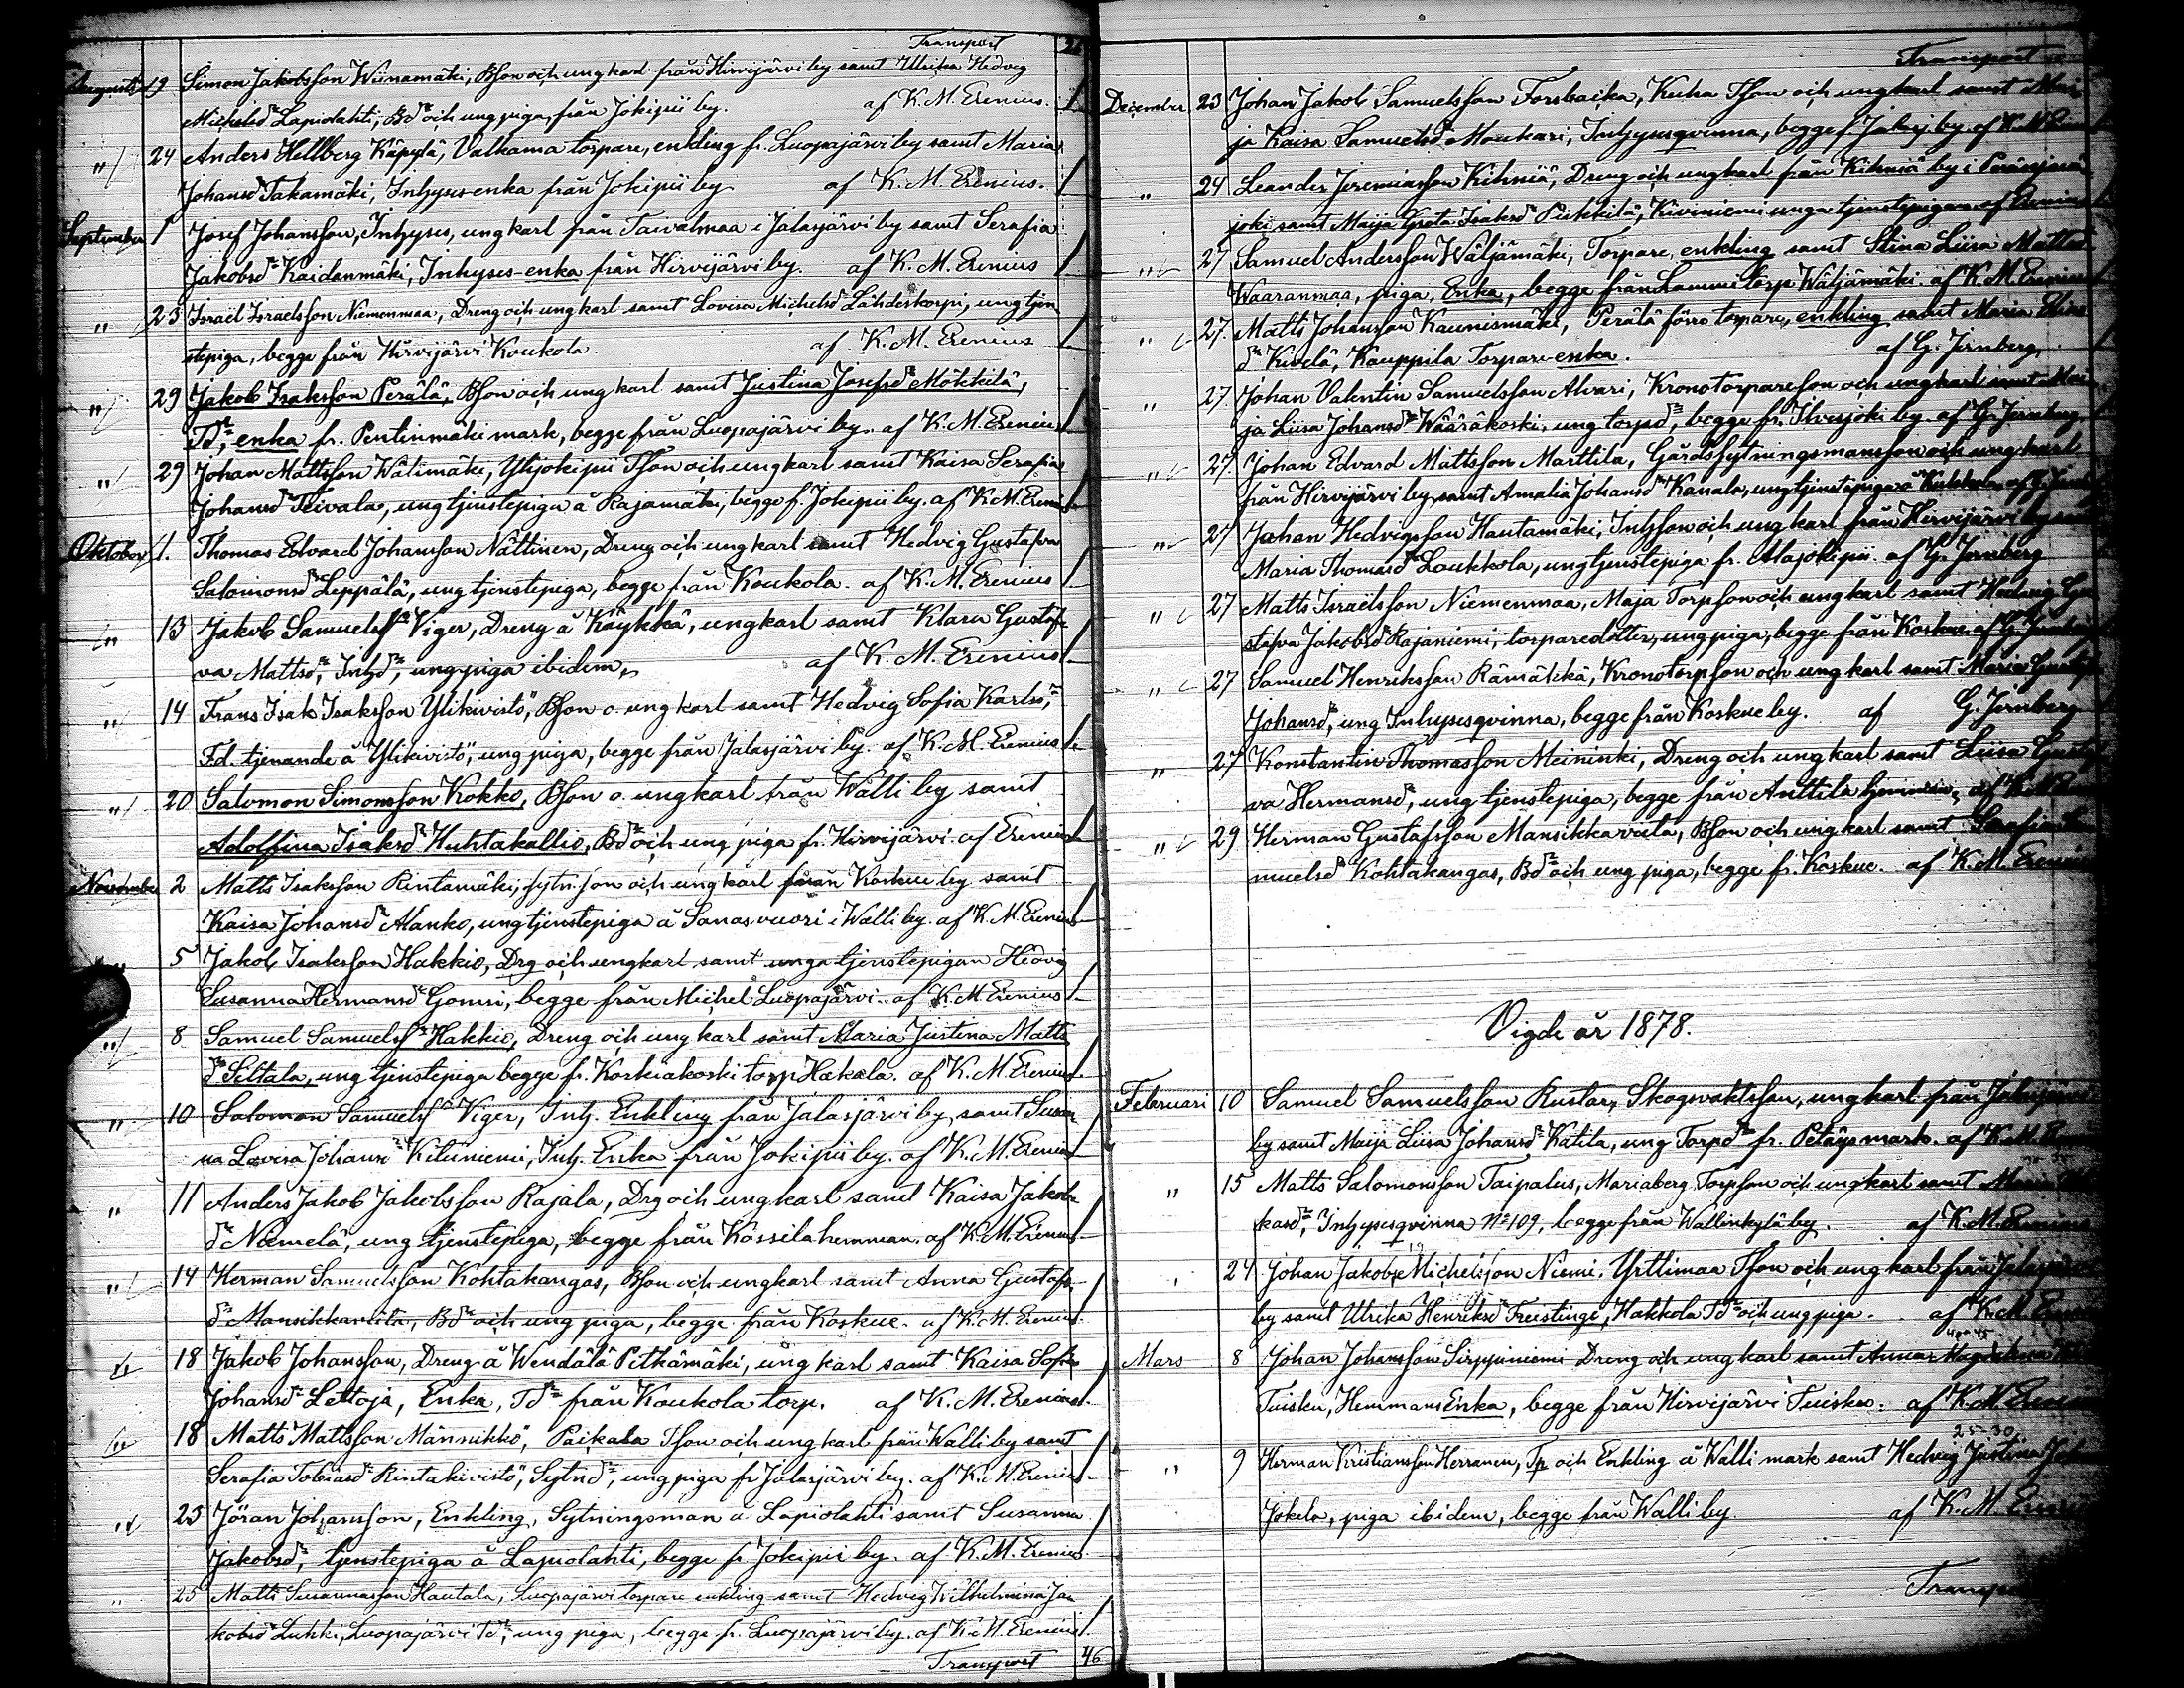 Transport
Augusti 19 Simon Jakobsson Wiinamäki, Bson och ungkarl från Hirvijärvi by samt Ulrika Hedvig
Michelsdr Lapiolahti, Bdr och ung piga, från Jokipii by. af K. M. Erenius. 1
" 24 Anders Hellberg Käpylä, Valkama torpare, enkling fr. Luopajärvi by samt Maria
Johansdr Takamäki, Inhyses-enka från Jokipii by af K. M. Erenius. 1
September 1 Josef Johansson, Inhyses, ungkarl från Taivalmaa i Jalasjärvi by samt Serafia
Jakobsdr Kaidanmäki, Inhyses-enka från Hirvijärvi by. af K. M. Erenius 1
" 23 Israel Israelsson Niemenmaa, Dreng och ungkarl samt Lovisa Michelsdr Lähdeskorpi, ung tjen-
stepiga, begge från Hirvijärvi Koukola. af K. M. Erenius 1
" 29 Jakob Isaksson Perälä, Bson och ungkarl samt Justina Josefsdr Mökkilä,
Tdr, enka fr. Pentinmäki mark, begge från Luopajärvi by. af K. M. Erenius 1
" 29 Johan Mattsson Wälimäki, Ylijokipii Tson och ungkarl samt Kaisa Serafia
Johansdr Teivalas, ung tjenstepiga å Rajamäki, begge f. Jokipii by. af K. M. Erenius
Oktober 1. Thomas Edvard Johansson Nättinen, Dreng och ungkarl samt Hedvig Gustafva
Salomonsdr Leppälä, ung tjenstepiga, begge från Koukola. af K. M. Erenius 1
" 13 Jakob Samuelsson Viger, Dreng å Käykkä, ungkarl samt Klara Gustaf-
va Mattsdr, Inhdr, ung piga ibidem, af K. M. Erenius 1
" 14 Frans Isak Isaksson Ylikivistö, Bson o. ungkarl samt Hedvig Sofia Karlsdr,
Fd. tjenande å Ylikivistö, ung piga, begge från Jalasjärvi by. af K. M. Erenius 1
" 20 Salomon Simonsson Kokko, Bson o. ungkarl från Walli by samt
Adolfina Isaksdr Huhtakallio, Bdr och ung piga fr. Hirvijärvi. af Erenius
November 2 Matts Isaksson Rintamäki, sytn. son och ungkarl från Koskue by samt
Kaisa Johansdr Alanko, ung tjenstepiga å Sanasvuori i Walli by. af K. M. Erenius
" 5 Jakob Isaksson Hakkio, Drg och ungkarl samt unga tjenstepigan Hedvig
Susanna Hermansdr Gomsi, begge från Michel Luopajärvi. af K. M. Erenius 1
" 8 Samuel Samuelsson Hakkio, Dreng och ungkarl samt Maria Justina Matts-
dr Siltala, ung tjenstepiga begge fr. Koskiakoski torp Hakala. af K. M. Erenius
" 10 Salomon Samuelsson Viger, Inh. Enkling från Jalasjärvi by, samt Susan-
na Lovisa Johansdr Kiluniemi, Inh. Enka från Jokipii by. af K. M. Erenius
" 11 Anders Jakob Jakobsson Rajala, Drg och ungkarl samt Kaisa Jakobs-
dr Niemelä, ung tjenstepiga, begge från Kössila hemman. af K. M. Erenius
" 14 Herman Samuelsson Kohtakangas, Bson och ungkarl samt Anna Gustafs-
dr Mansikkaviita, Bdr och ung piga, begge från Koskue. af K. M. Erenius
" 18 Jakob Johansson, Dreng å Wendälä Pitkämäki, ungkarl samt Kaisa Sofia
Johansdr Lettoja, Enka, Tdr från Koukola torp. af K. M. Erenius 1
" 18 Matts Mattsson Männikkö, Paikala Tson och ungkarl från Walli by samt
Serafia Tobiasdr Rintakivistö, Sytndr, ung piga fr Jalasjärvi by. af K. M. Erenius
" 25 Jöran Johansson, Enkling, Sytningsman å Lapiolahti samt Susanna
Jakobsdr, tjenstepiga å Lapiolahti, begge fr Jokipii by. af K. M. Erenius
" 25 Matts Susannasson Hautala, Luopajärvi torpare enkling samt Hedvig Wilhelmina Ja-
kobsdr Lukki, Luopajärvi Tdr, ung piga, begge fr. Luopajärvi by. af K. M. Erenius 1
Transport 46
Transport
December 23 Johan Jakob Samuelsson Forsbacka, Kuha Tson och ungkarl samt Mai-
ja Kaisa Samuelsdr Moukari, Inhysesqvinna, begge f. Jalasj. by. af K. M.
" 24 Leander Jeremiasson Kihniä, Dreng och ungkarl från Kihniä by i Peräseinä-
joki samt Maija Greta Isaksdr Pirkkilä, Kiviniemi unga tjenstepigan. af Erenius
" 27 Samuel Andersson Wäljämäki, Torpare, enkling samt Stina Liisa Matts
Waaranmaa, piga, Enka, begge från Lammi torp Wäljämäki. af K. M. Erenius
" 27. Matts Johansson Kaunismäki, Perälä förre torpare, enkling samt Maria Elias-
dr Kivelä, Kauppila Torpare-enka. af G. Jernberg.
" 27. Johan Valentin Samuelsson Alvari, Kronotorpareson och ungkarl samt Mai-
ja Liisa Johansdr Wääräkoski, ung torpdr, begge fr. Ilvesjoki by. af G. Jernberg
" 27. Johan Edvard Mattsson Marttila, Gårdssytningsmansson och ungkarl
från Hirvijärvi by, samt Amalia Johansdr Kanala, ung tjenstepiga
" 27 Johan Hedvigsson Hautamäki, Inhson och ungkarl från Hirvijärvi by
Maria Thomasdr Loukkola, ung tjenstepiga fr. Alajokipii. af G. Jernberg
" 27 Matts Israelsson Niemenmaa, Maja Torpson och ungkarl samt Hedvig Gu-
stafva Jakobsdr Rajaniemi, torparedotter, ung piga, begge från Koskue. af G. Jernberg
" 27 Samuel Henriksson Rämäkkä, Kronotorpson och ungkarl samt Maria
Johansdr, ung Inhysesqvinna, begge från Koskue by. af G. Jernberg
" 27 Konstantin Thomasson Meininki, Dreng och ungkarl samt Liisa Gustaf-
va Hermansdr, ung tjenstepiga, begge från Anttila
" 29 Herman Gustafsson Mansikkaviita, Bson och ungkarl samt Serafia Sa-
muelsdr Kohtakangas, Bdr och ung piga, begge fr. Koskue. af K. M. Erenius
Vigde år 1878.
Februari 10 Samuel Samuelsson Rustar, Skogsvaktsson, ungkarl från Jalasjärvi
by samt Maija Liisa Johansdr Katila, ung Torpdr fr. Petäys mark. af K. M.
" 15 Matts Salomonsson Taipalus, Mariaberg Torpson och ungkarl samt
kasdr, Inhysesqvinna No 109, begge från Wallinkylä by. af K. M. Erenius
" 24 Johan Jakob Michelsson Niemi, Yrttimaa Tson och ungkarl från
by samt Ulrika Henriksdr Freistinge, Hakkola Tdr och ung piga. af K. M.
Mars 8 Johan Johansson Sirppiniemi Dreng och ungkarl samt Anna Magdalena
Tuisku, Hemmans Enka, begge från Hirvijärvi Tuisku. af K. M.
25-30
" 9 Herman Kristiansson Herranen, Tp och Enkling å Walli mark samt Hedvig Justina
Jokela, piga ibidem, begge från Walli by. af K. M.